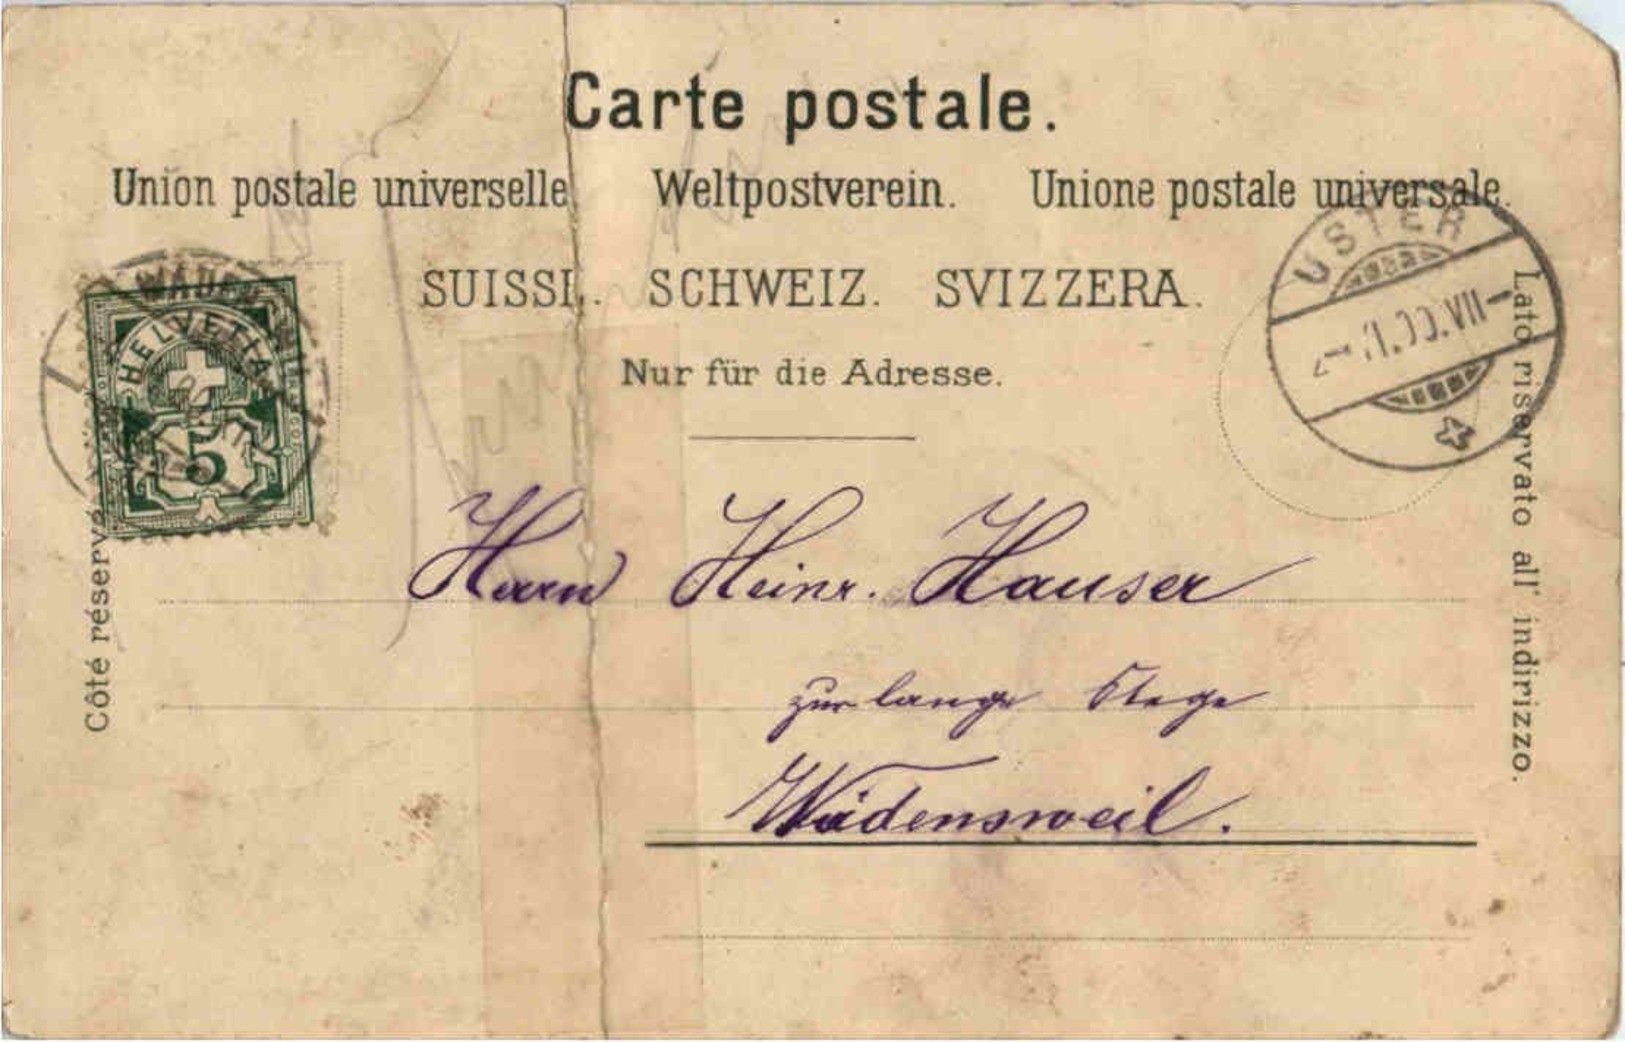 Carte postale.
Union postale universelle. Weltpostverein. Unione postale universale.
SUISSE. SCHWEIZ. SVIZZERA.
Nur für die Adresse.
HELVETIA
5
USTER
VII
Herrn Heinr. Hauser
zur lange Stege
Wädensweil.
Côté réservé
Lato riservato all' indirizzo.